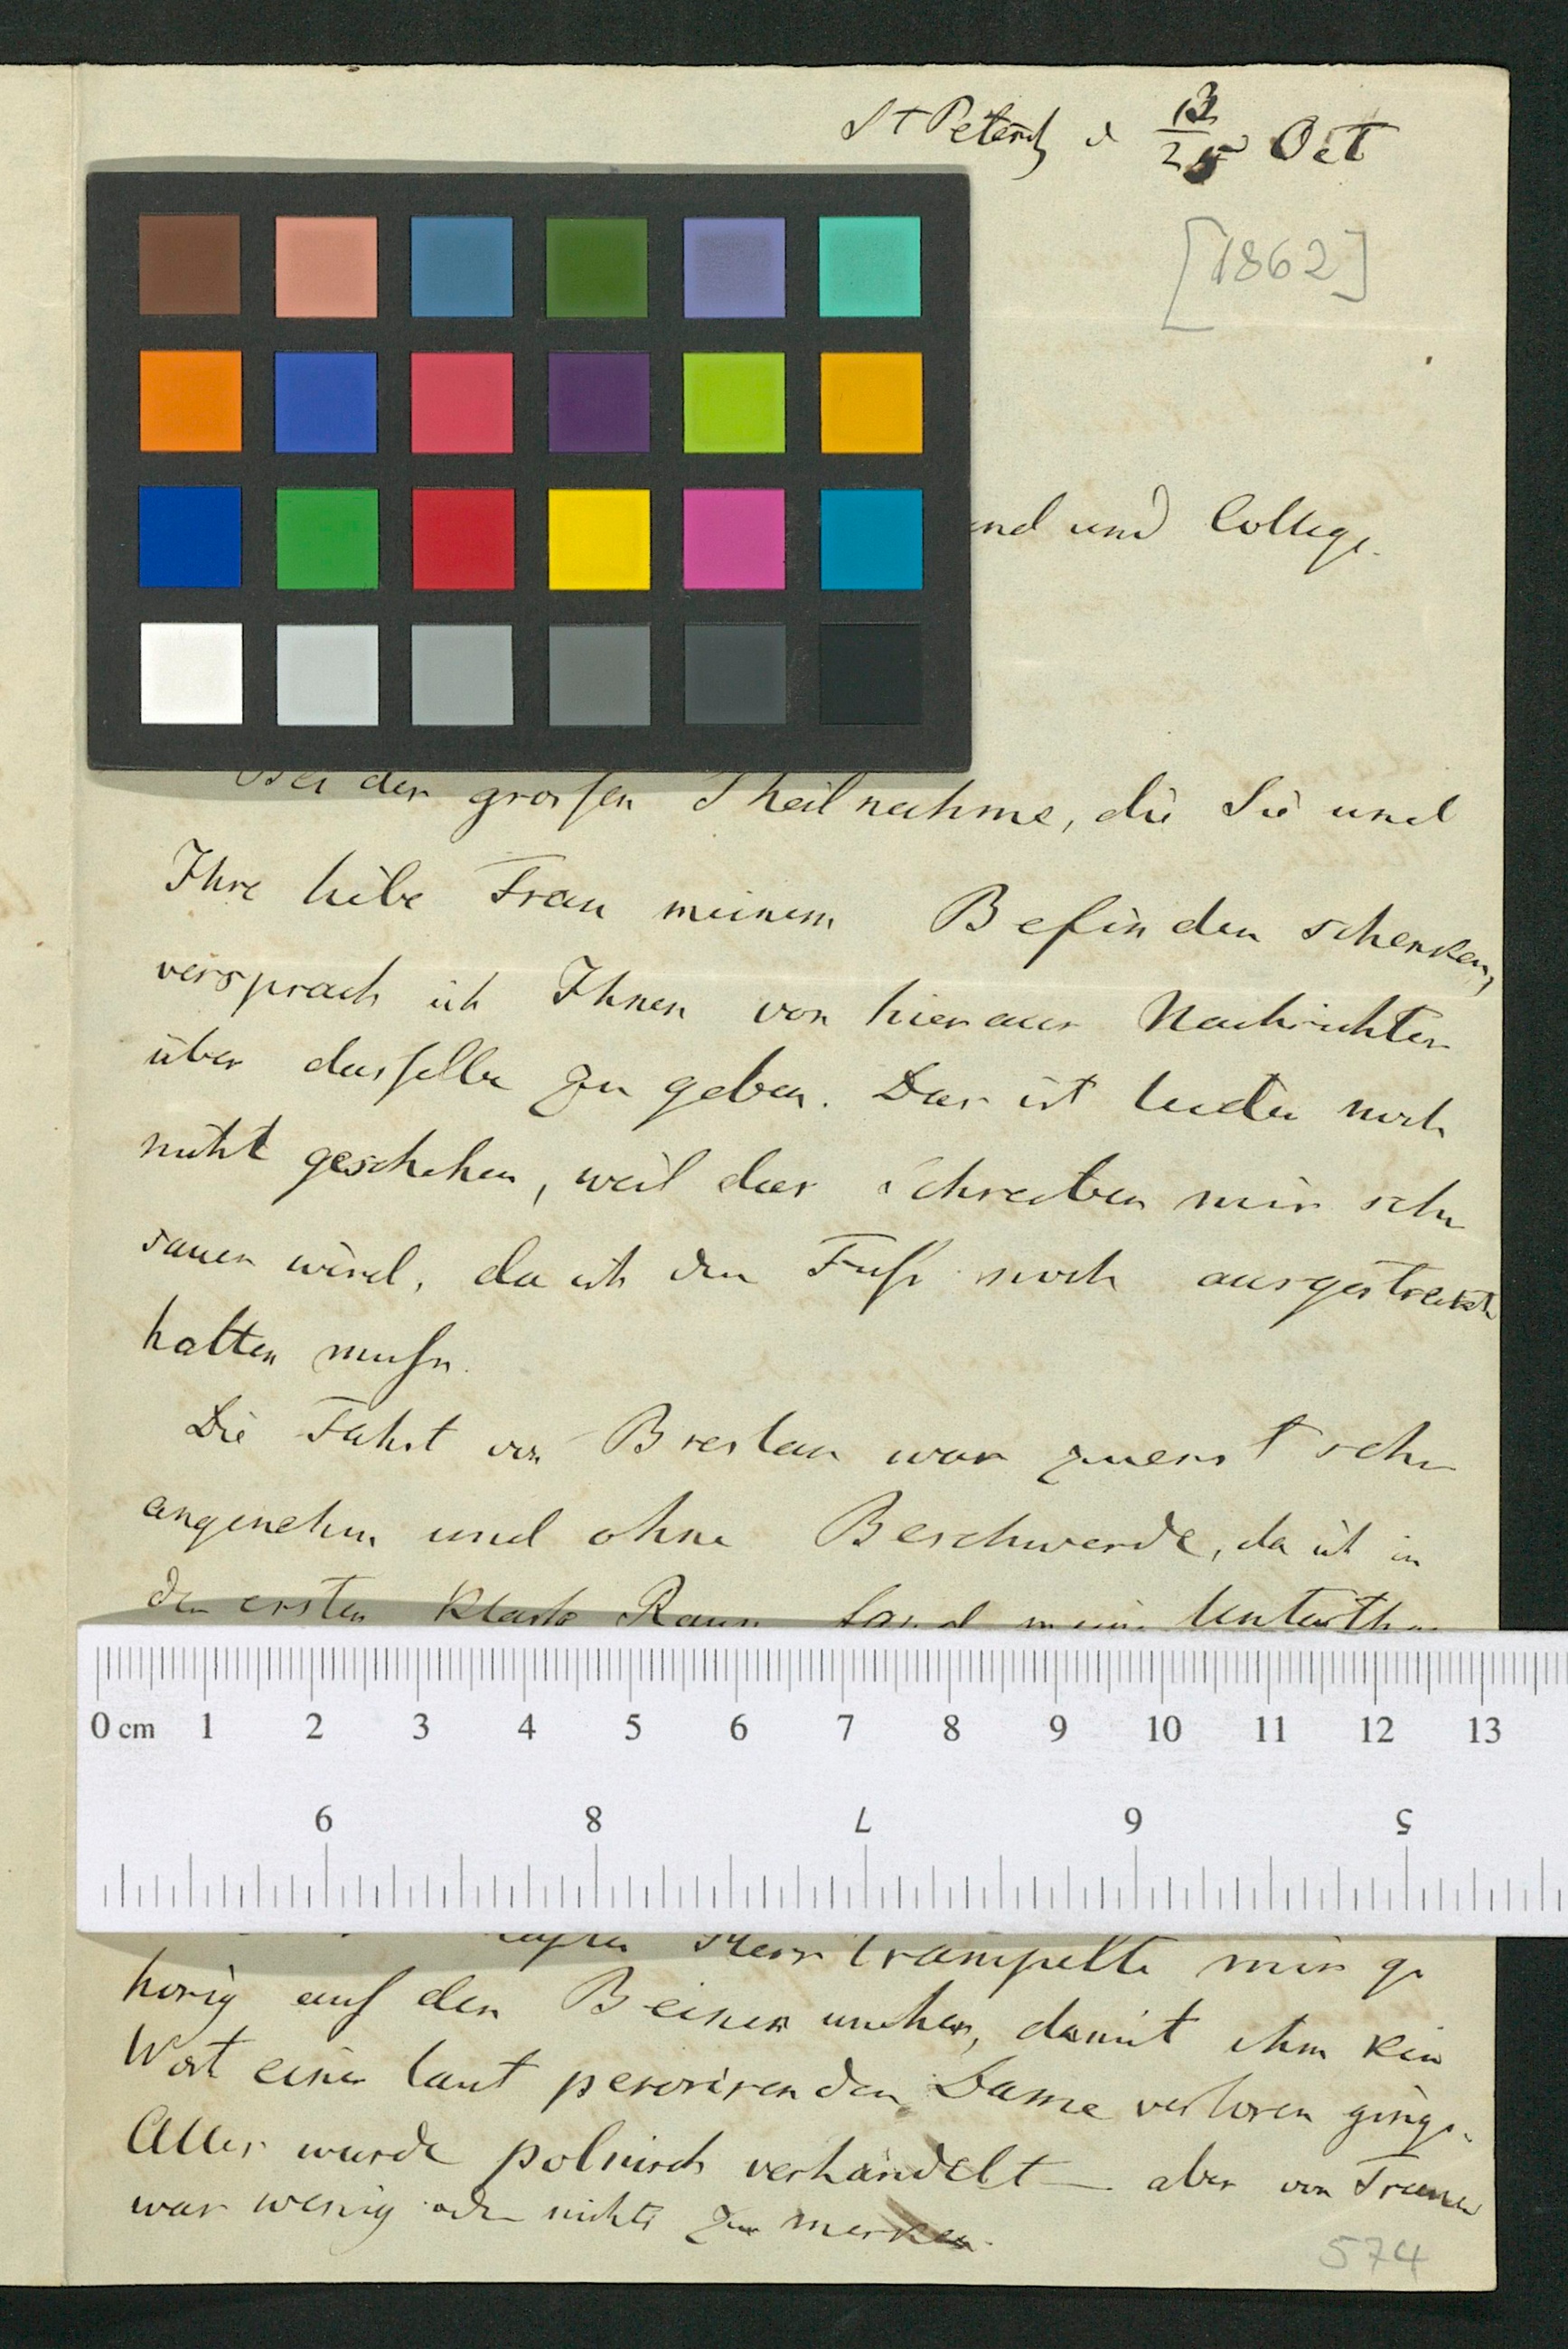 St Petersb d 13/25 Oct
[1862]
und College.
Bei der grossen Theilnahme, die Sie und
Ihre liebe Frau meinem Befinden schenken,
versprach ich Ihnen von hieraus Nachrichten
über dasselbe zu geben. Das ist leider noch
nicht geschehen, weil das Schreiben mir sehr
sauer wird, da ich den Fuß noch ausgestreckt
halten muß.
Die Fahrt von Breslau war zuerst sehr
angenehm und ohne Beschwerde, da ich in
der ersten Klasse Raum fand meine
0 cm 1 2 3 4 5 6 7 8 9 10 11 12 13
9 8 7 6 5
Herr trampelte mir ge
hörig auf den Beinen umher, damit ihm kein
Wort einer laut perorirenden Dame verloren ginge.
Alles wurde polnisch verhandelt — aber von Trauer
war wenig oder nichts zu merken.
574